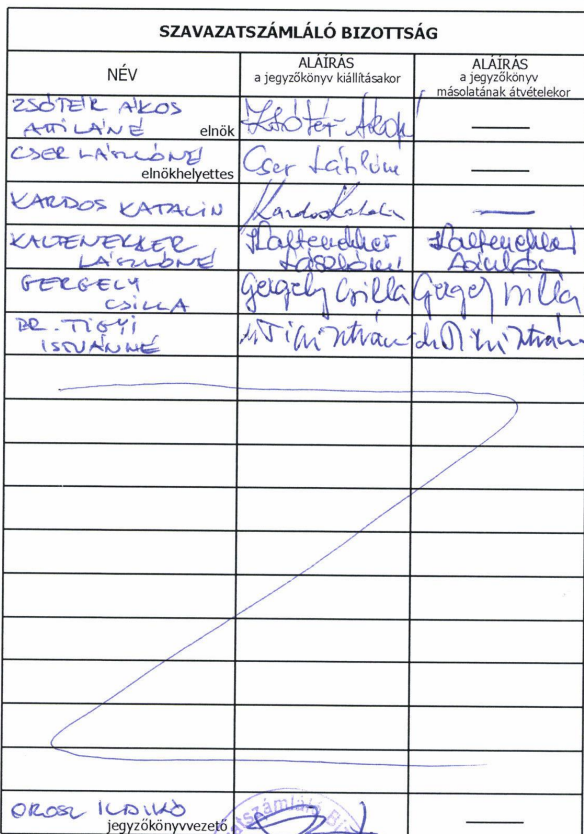 SZAVAZATSZÁMLÁLÓ BIZOTTSÁG
NÉV
ALÁÍRÁS
a jegyzőkönyv kiállításakor
ALÁÍRÁS
a jegyzőkönyv
másolatának átvételekor
ZSÓTÉR ÁKOS
ATTILÁNÉ elnök
Zsótér Ákos
CSER LÁSZLÓNÉ
elnökhelyettes
Cser Lászlóné
KARDOS KATALIN
Kardos Katalin
KALTENEKKER
LÁSZLÓNÉ
Kaltenekker
Lászlóné
Kaltenekker
GERGELY
CSILLA
Gergely Csilla
Gergely Csilla
DR. TIGYI
ISTVÁNNÉ
dr Tigyi István
dr Tigyi István
OROSZ ILDIKÓ
jegyzőkönyvvezető